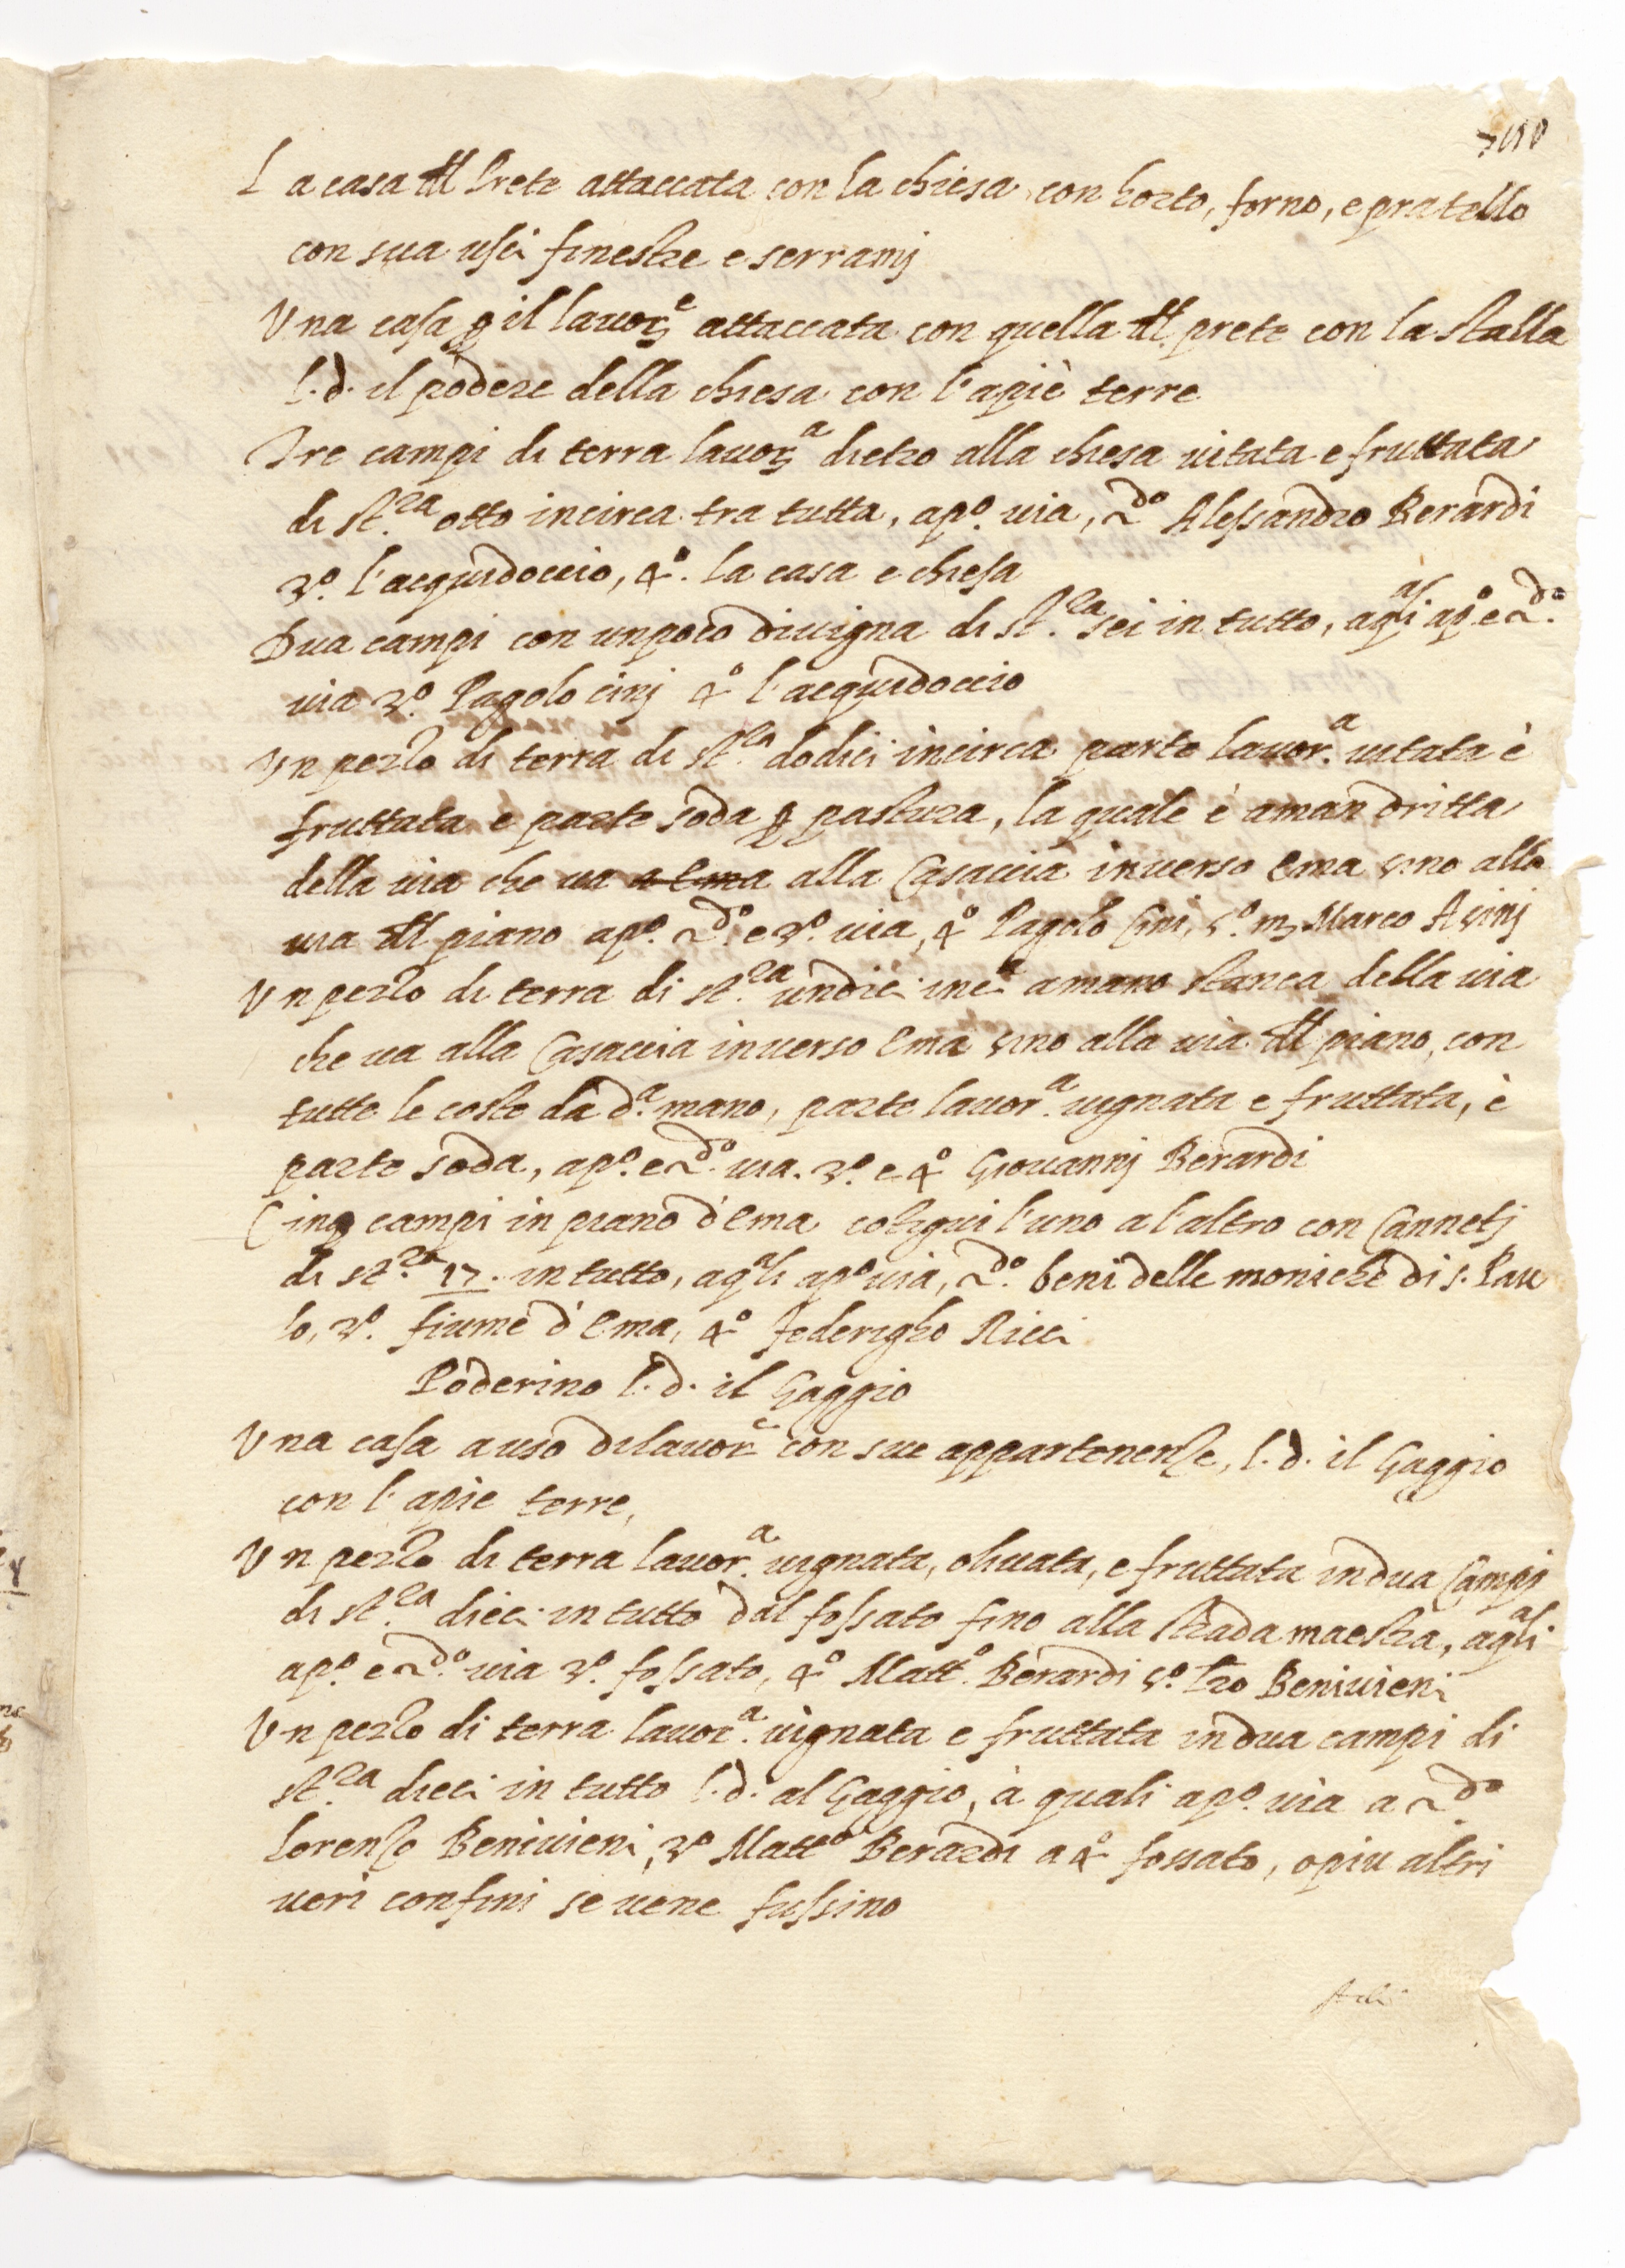 La casa dell Prete attaccata con la chiesa con horto, forno, e pratello
con sua usci finestre e serramj
Una casa p il lavorᵉ attaccata con quella dell prete con la stalla
l.d. il podere della chiesa con l'apiè terre
Tre campi di terra lavorᵃ dietro alla chiesa vitata e fruttata
di st.ʳᵃ otto incirca tra tutta, apº. via, 2ᵈº Alessandro Berardi
3º. l'acquidoccio, 4º. la casa e chiesa
Dua campi con un poco di vigna di st.ʳᵃ sei in tutto, aqᵃˡⁱ apº e 2ᵈº.
via 3º. Pagolo cinj 4º l'acquidoccio
Un pezzo di terra di st.ʳᵃ dodici incirca parte lavor.ᵃ vitata è
fruttata e parte soda p pastura, la quale è aman dritta
della via che va a Ema alla Casaccia inverso Ema sino alla
via dell piano apº. 2ᵈº. e 3º. via, 4º Pagolo Cini, 5º. mʳ Marco Asinj
Un pezzo di terra di st.ʳᵃ undici incᵃ a mano stanca della via
che va alla Casaccia inverso Ema sino alla via dell piano, con
tutte le coste da d.ᵃ mano, parte lavor.ᵃ vignata e fruttata, è
parte soda, apº. e 2ᵈº. via. 3º. e 4º Giovannj Berardi
Cinq campi in piano d'Ema cotigui l'uno a l'altro con Cannetj
di st.ʳᵃ 17. in tutto, aqᵃˡⁱ apº via, 2ᵈº. beni delle moniche di s. Pau
lo, 3º. fiume d'Ema, 4º Federigho Ricci
Poderino l.d. il Gaggio
Una casa a uso di lavorᵉ con sue appartenenze, l.d. il Gaggio
con l'apie terre,
Un pezzo di terra lavor.ᵃ vignata, olivata, e fruttata in dua Campi
di st.ʳᵃ dieci in tutto dal fossato fino alla strada maestra, aqᵃˡⁱ
apº. e 2ᵈº. via 3º. fossato, 4º Mattº. Berardi 5º. lzo Benivieni
Un pezzo di terra lavor.ᵃ vignata e fruttata in dua campi di
st.ʳᵃ dieci in tutto l.d. al Gaggio, à quali apº. via a 2ᵈº
lorenzo Benivieni, 3º Mattº Berardi a 4º fossato, o piu altri
veri confini se vene fussino